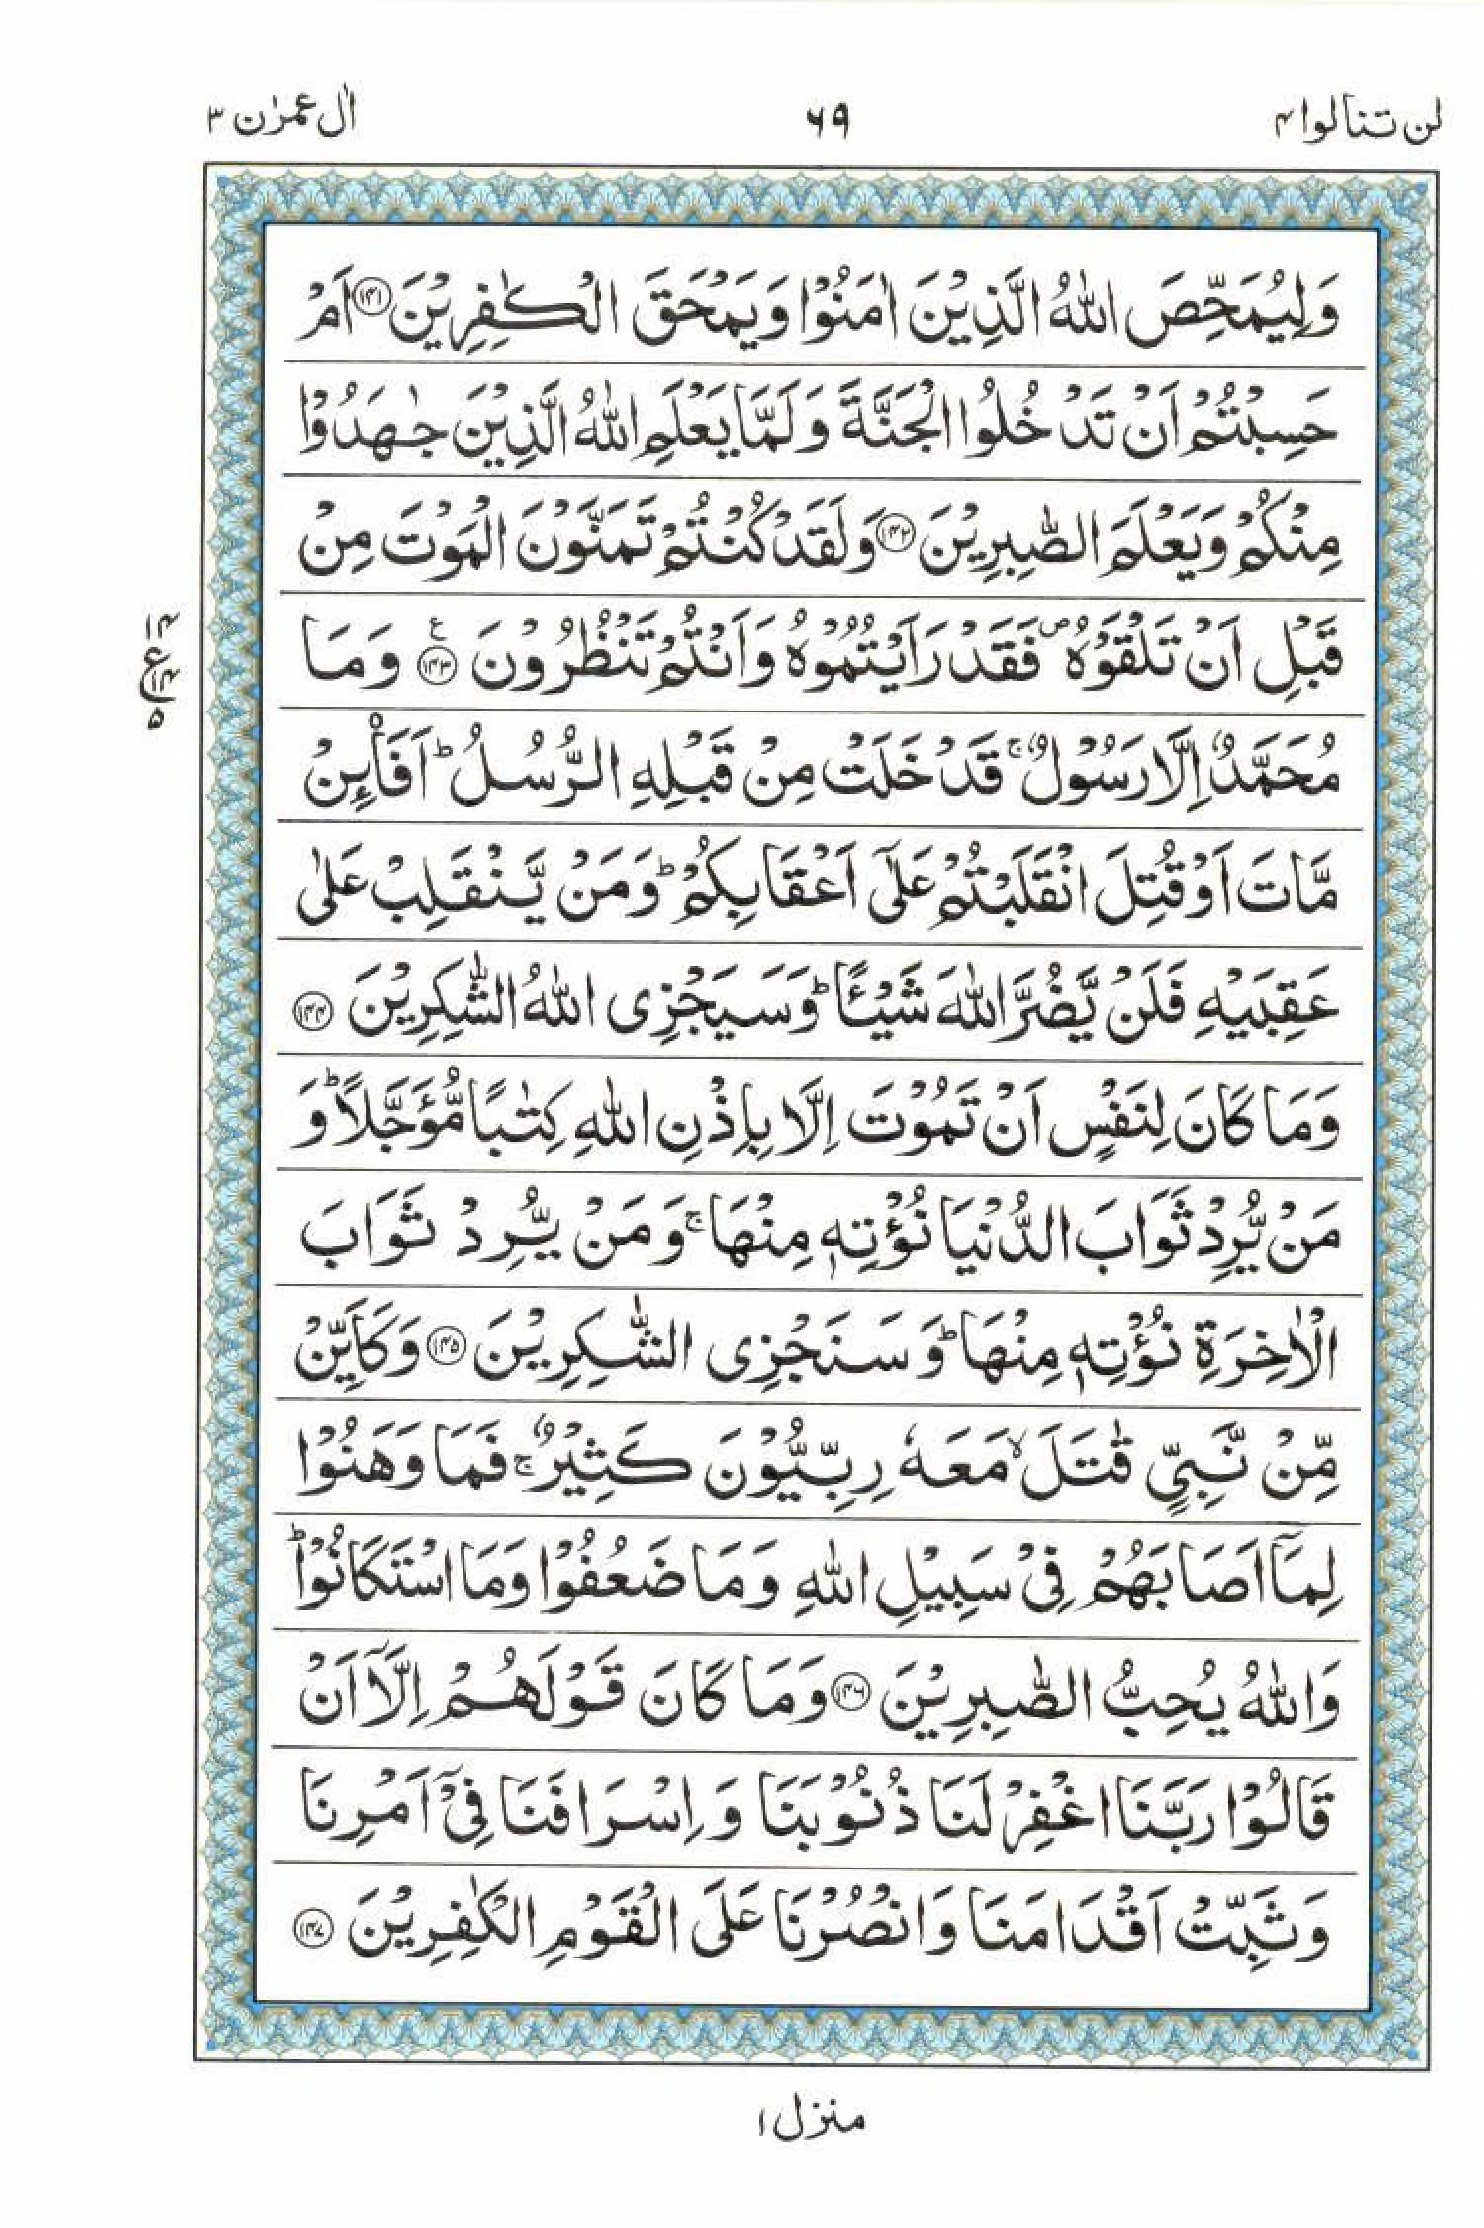 لن تنالوا ۴
۶۹
اٰل عمرٰن ۳
وَلِيُمَحِّصَ اللّٰهُ الَّذِيْنَ اٰمَنُوْا وَيَمْحَقَ الْكٰفِرِيْنَ ﴿۱۴۱﴾ اَمْ
حَسِبْتُمْ اَنْ تَدْخُلُوا الْجَنَّةَ وَلَمَّا يَعْلَمِ اللّٰهُ الَّذِيْنَ جٰهَدُوْا
مِنْكُمْ وَيَعْلَمَ الصّٰبِرِيْنَ ﴿۱۴۲﴾ وَلَقَدْ كُنْتُمْ تَمَنَّوْنَ الْمَوْتَ مِنْ
قَبْلِ اَنْ تَلْقَوْهُ ۪ فَقَدْ رَاَيْتُمُوْهُ وَاَنْتُمْ تَنْظُرُوْنَ ﴿۱۴۳﴾ ع وَمَا
۱۴
ع
۱۴
۵
مُحَمَّدٌ اِلَّا رَسُوْلٌ ۚ قَدْ خَلَتْ مِنْ قَبْلِهِ الرُّسُلُ ؕ اَفَا۠ئِنْ
مَّاتَ اَوْ قُتِلَ انْقَلَبْتُمْ عَلٰٓى اَعْقَابِكُمْ ؕ وَمَنْ يَّنْقَلِبْ عَلٰى
عَقِبَيْهِ فَلَنْ يَّضُرَّ اللّٰهَ شَيْـًٔا ؕ وَسَيَجْزِى اللّٰهُ الشّٰكِرِيْنَ ﴿۱۴۴﴾
وَمَا كَانَ لِنَفْسٍ اَنْ تَمُوْتَ اِلَّا بِاِذْنِ اللّٰهِ كِتٰبًا مُّؤَجَّلًا ؕ وَ
مَنْ يُّرِدْ ثَوَابَ الدُّنْيَا نُؤْتِهٖ مِنْهَا ۚ وَمَنْ يُّرِدْ ثَوَابَ
الْاٰخِرَةِ نُؤْتِهٖ مِنْهَا ؕ وَسَنَجْزِى الشّٰكِرِيْنَ ﴿۱۴۵﴾ وَكَاَيِّنْ
مِّنْ نَّبِيٍّ قٰتَلَ ۙ مَعَهٗ رِبِّيُّوْنَ كَثِيْرٌ ۚ فَمَا وَهَنُوْا
لِمَاۤ اَصَابَهُمْ فِيْ سَبِيْلِ اللّٰهِ وَمَا ضَعُفُوْا وَمَا اسْتَكَانُوْا ؕ
وَاللّٰهُ يُحِبُّ الصّٰبِرِيْنَ ﴿۱۴۶﴾ وَمَا كَانَ قَوْلَهُمْ اِلَّاۤ اَنْ
قَالُوْا رَبَّنَا اغْفِرْ لَنَا ذُنُوْبَنَا وَاِسْرَافَنَا فِيْۤ اَمْرِنَا
وَثَبِّتْ اَقْدَامَنَا وَانْصُرْنَا عَلَى الْقَوْمِ الْكٰفِرِيْنَ ﴿۱۴۷﴾
منزل ۱